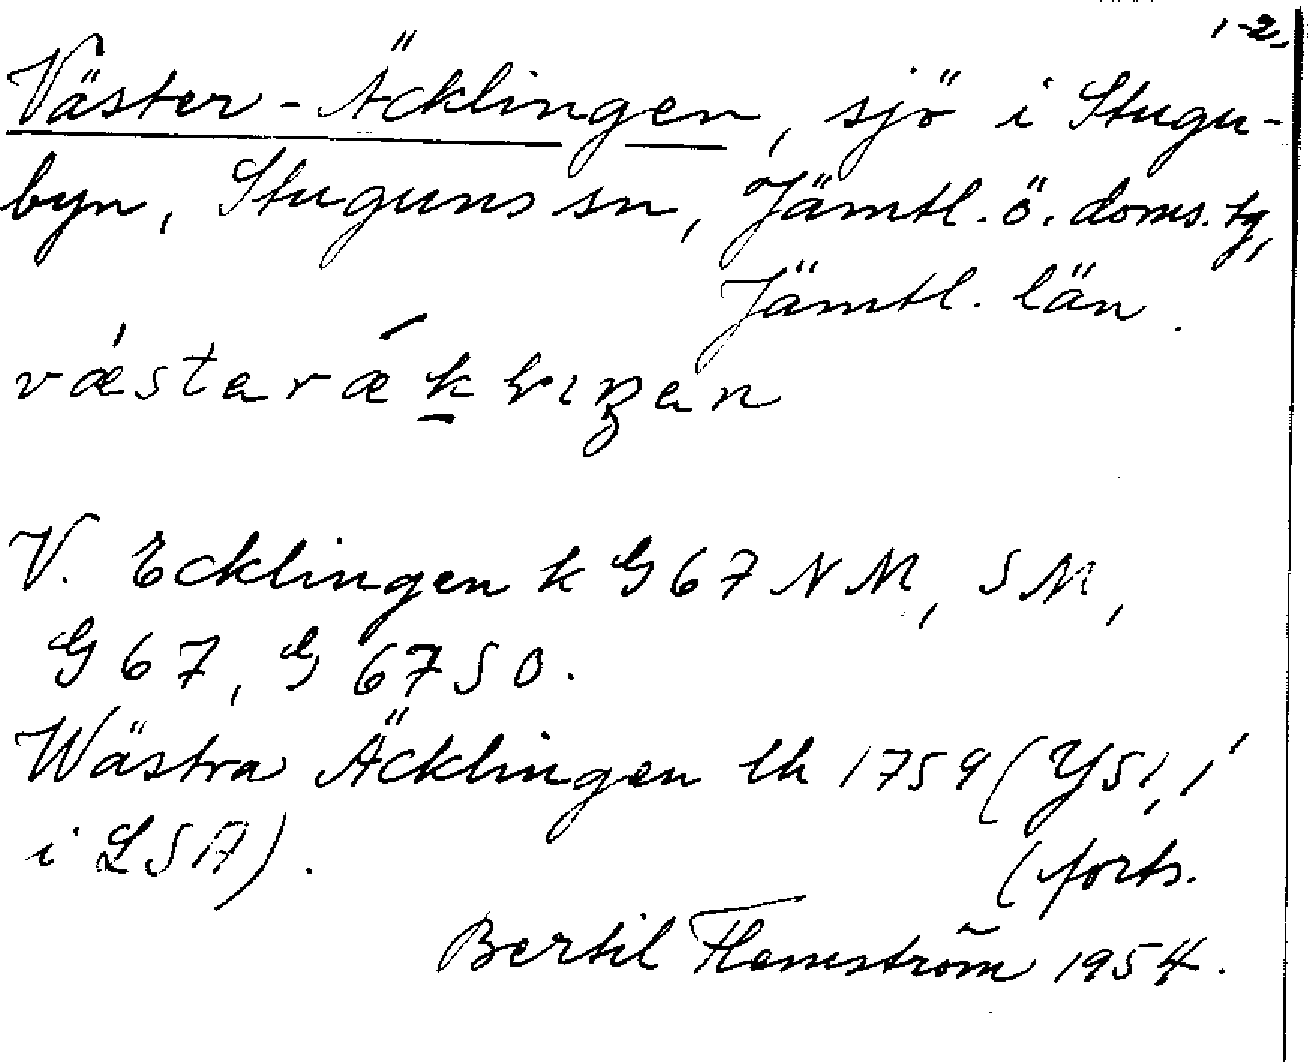 1-2.
Väster-Äcklingen, sjö i Stugu-
byn, Stuguns sn, Jämtl. ö. doms. tg,
Jämtl. län.
V. Ecklingen k G67NM, SM,
G67, G67SO.
Wästra Äcklingen lh 1759 (Y51, 1
i LSA).
(forts.
Bertil Flemström 1954.